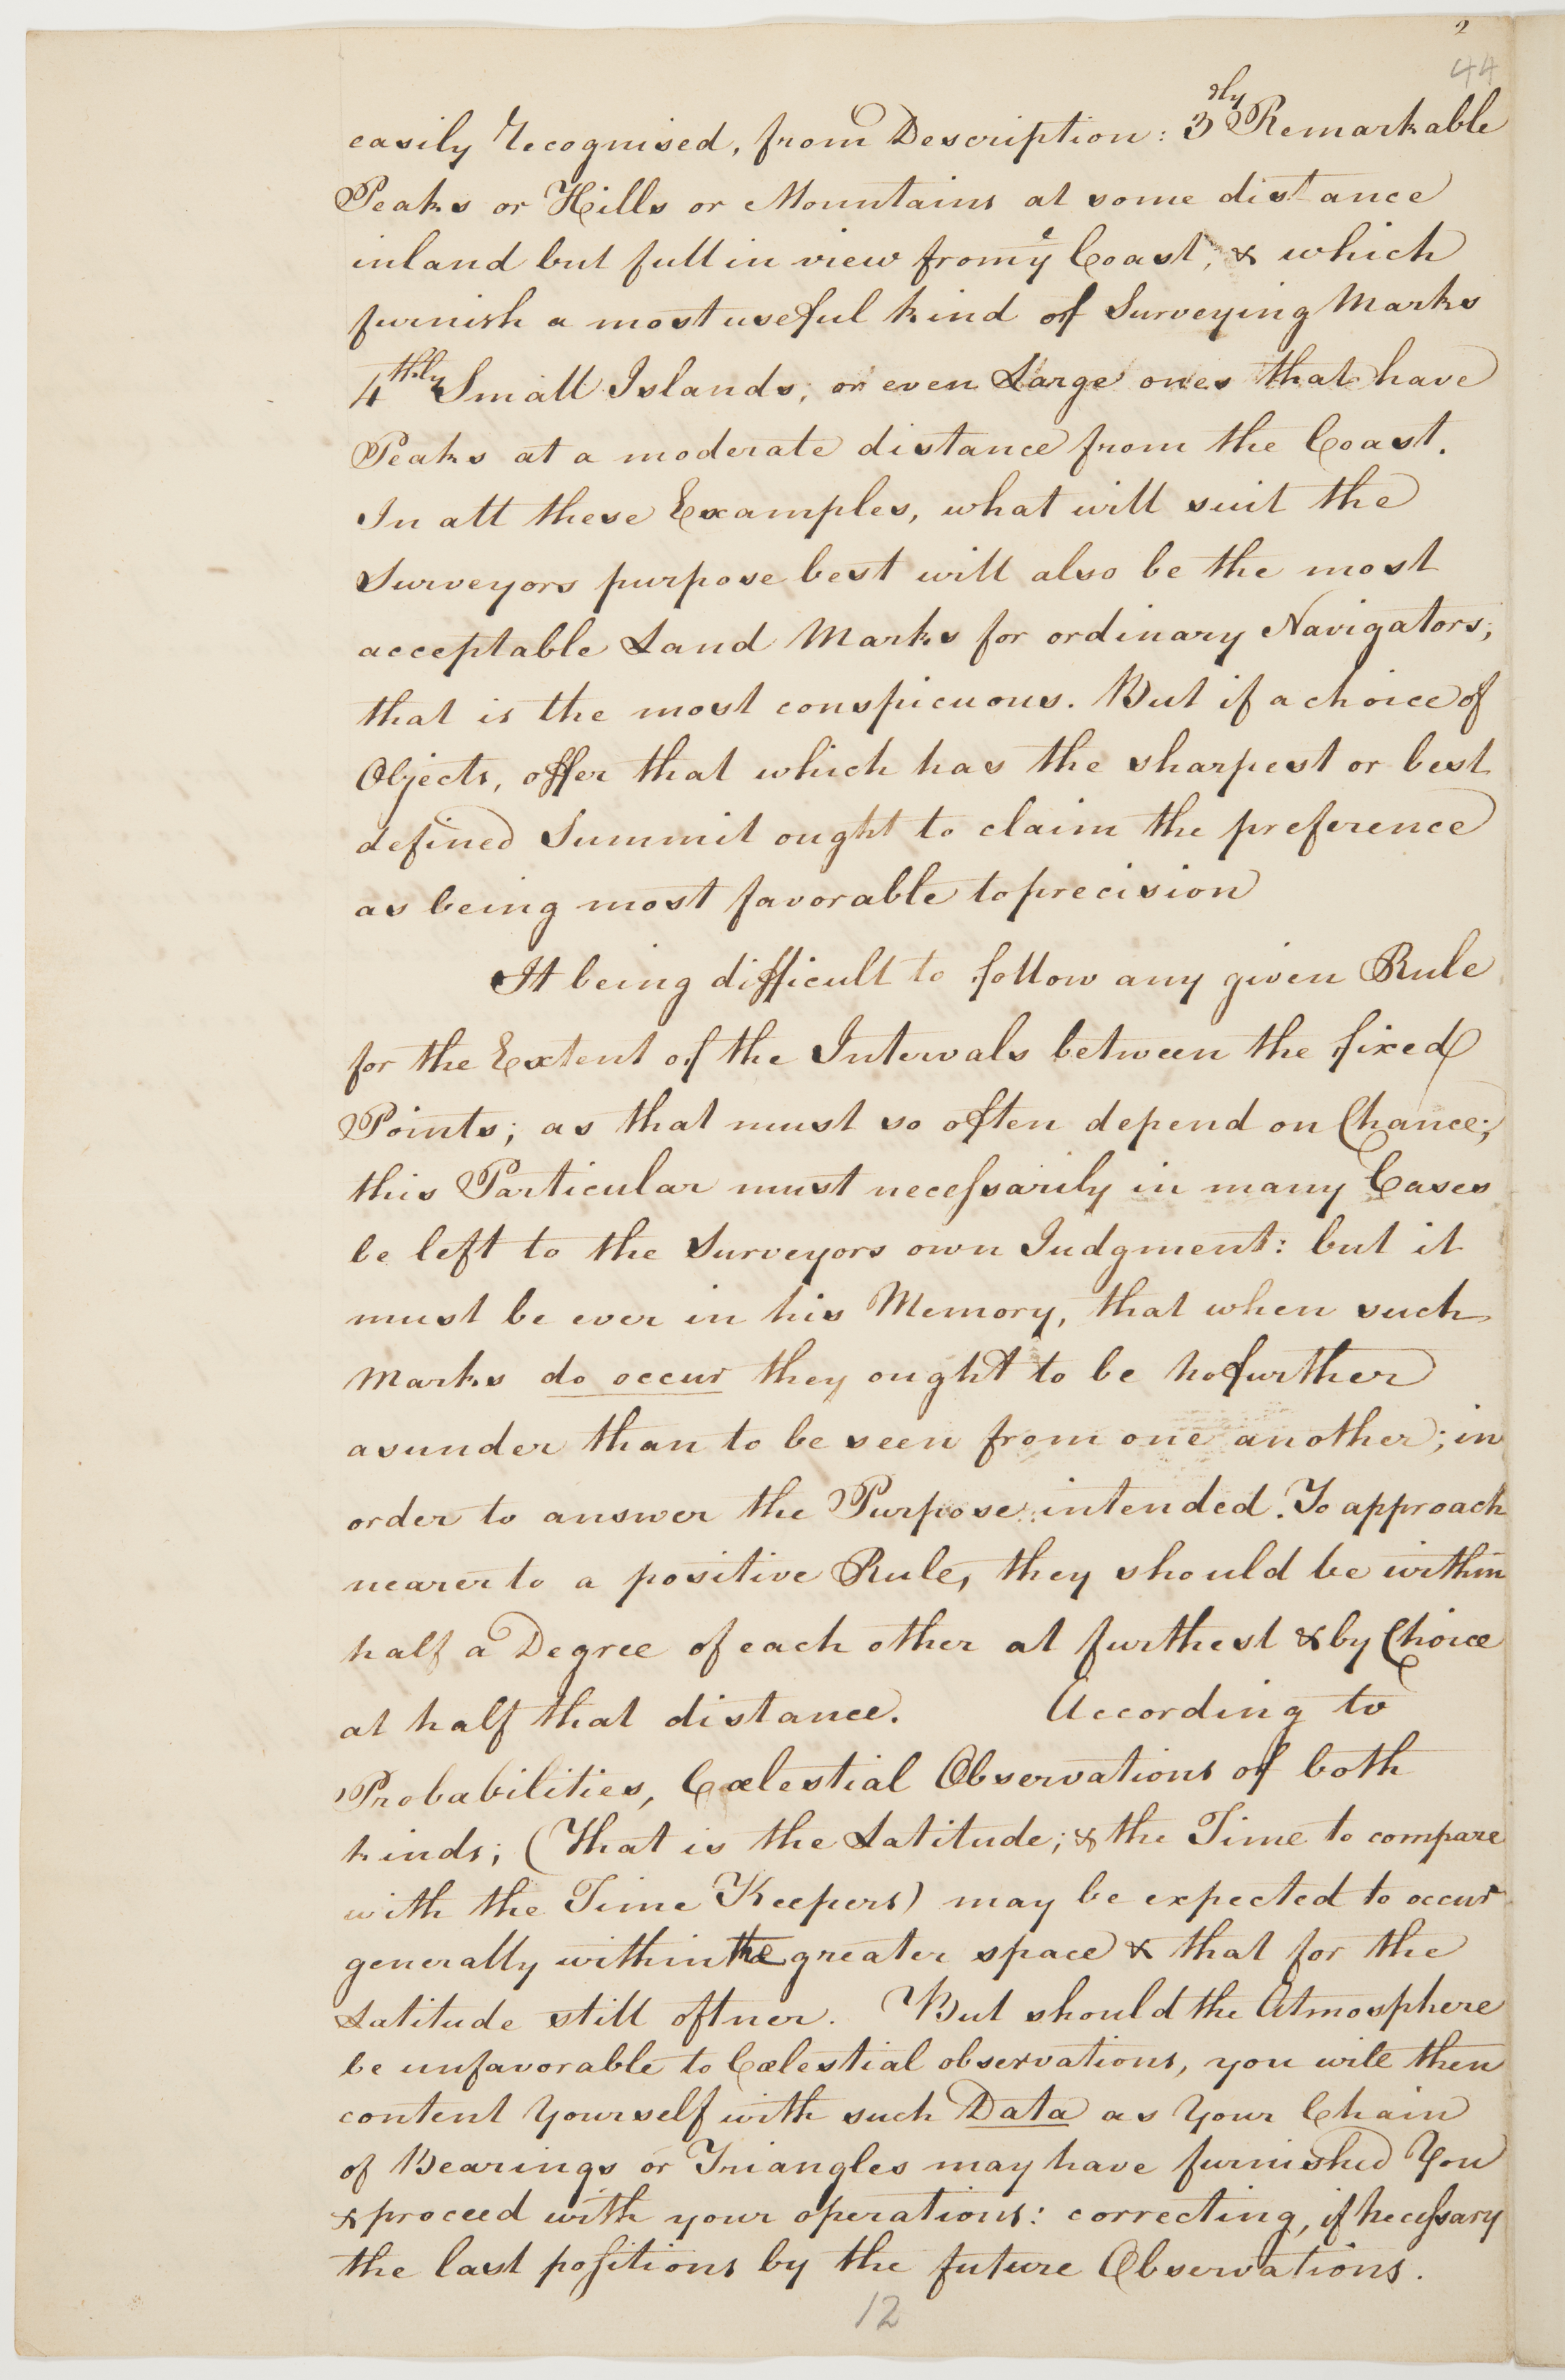 2
44
easily recognised, from Description: 3dly Remarkable
Peaks or Hills or Mountains at some distance
inland but full in view from ye Coast, & which
furnish a most useful kind of Surveying Marks
4thly Small Islands, or even Large ones that have
Peaks at a moderate distance from the Coast.
In all these Examples, what will suit the
Surveyors purpose best will also be the most
acceptable Land Marks for ordinary Navigators;
that is the most conspicuous. But if a choice of
Objects, offer that which has the sharpest or best
defined Summit ought to claim the preference
as being most favorable to precision
It being difficult to follow any given Rule
for the Extent of the Intervals between the fixed
Points; as that must so often depend on Chance;
this Particular must necessarily in many Cases
be left to the Surveyors own Judgment: but it
must be ever in his Memory, that when such
Marks do occur they ought to be no further
asunder than to be seen from one another; in
order to answer the Purpose intended. To approach
nearer to a positive Rule, they should be within
half a Degree of each other at furthest & by Choice
at half that distance. According to
Probabilities, Cœlestial Observations of both
kinds; (That is the Latitude; & the Time to compare
with the Time Keepers) may be expected to occur
generally within the greater space & that for the
Latitude still oftner. But should the Atmosphere
be unfavorable to Cœlestial observations, you will then
content Yourself with such Data as Your Chain
of Bearings or Triangles may have furnished You
& proceed with your operations: correcting, if necessary
the last positions by the future Observations.
12